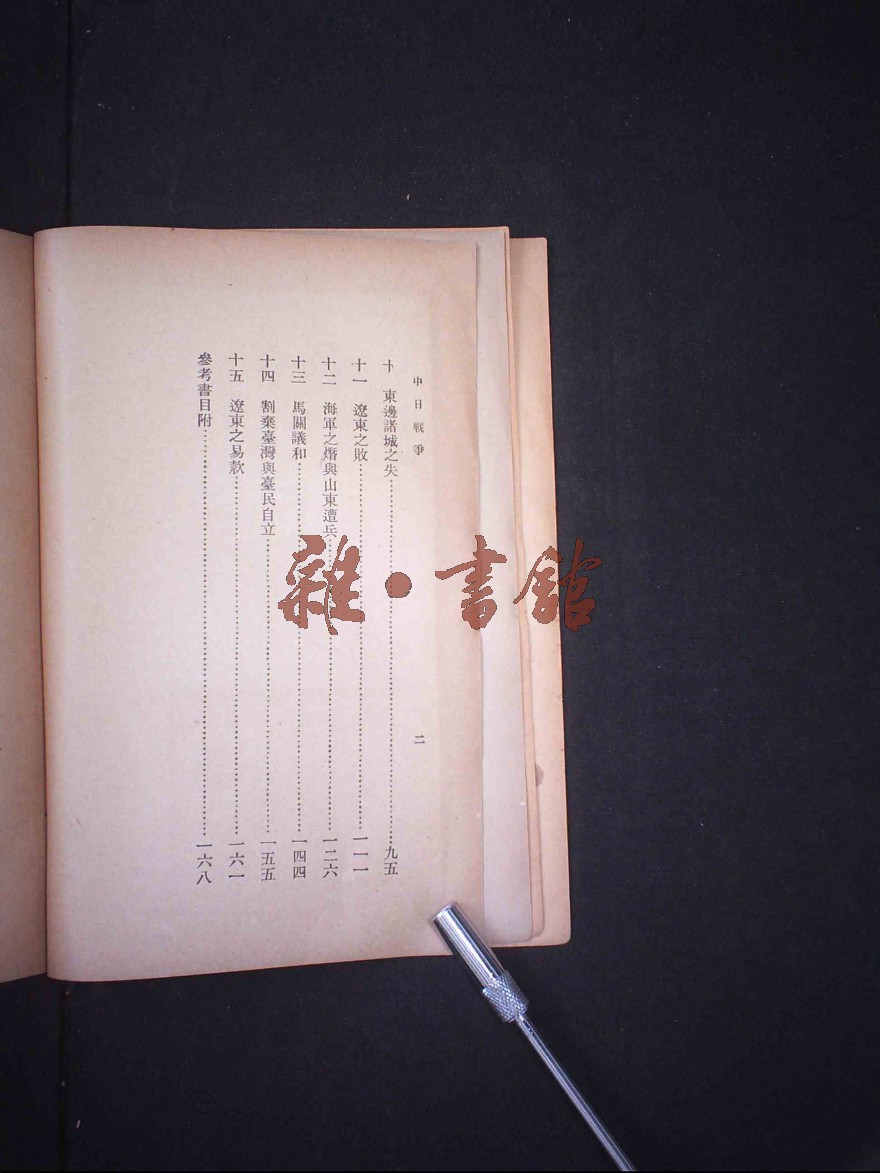 中日戰爭
二
十 東邊諸城之失……九五
十一 遼東之敗……一一一
十二 海軍之熸與山東遭兵……一二六
十三 馬關議和……一四四
十四 割棄臺灣與臺民自立……一五五
十五 遼東之易款……一六一
參考書目附……一六八
雜·書館